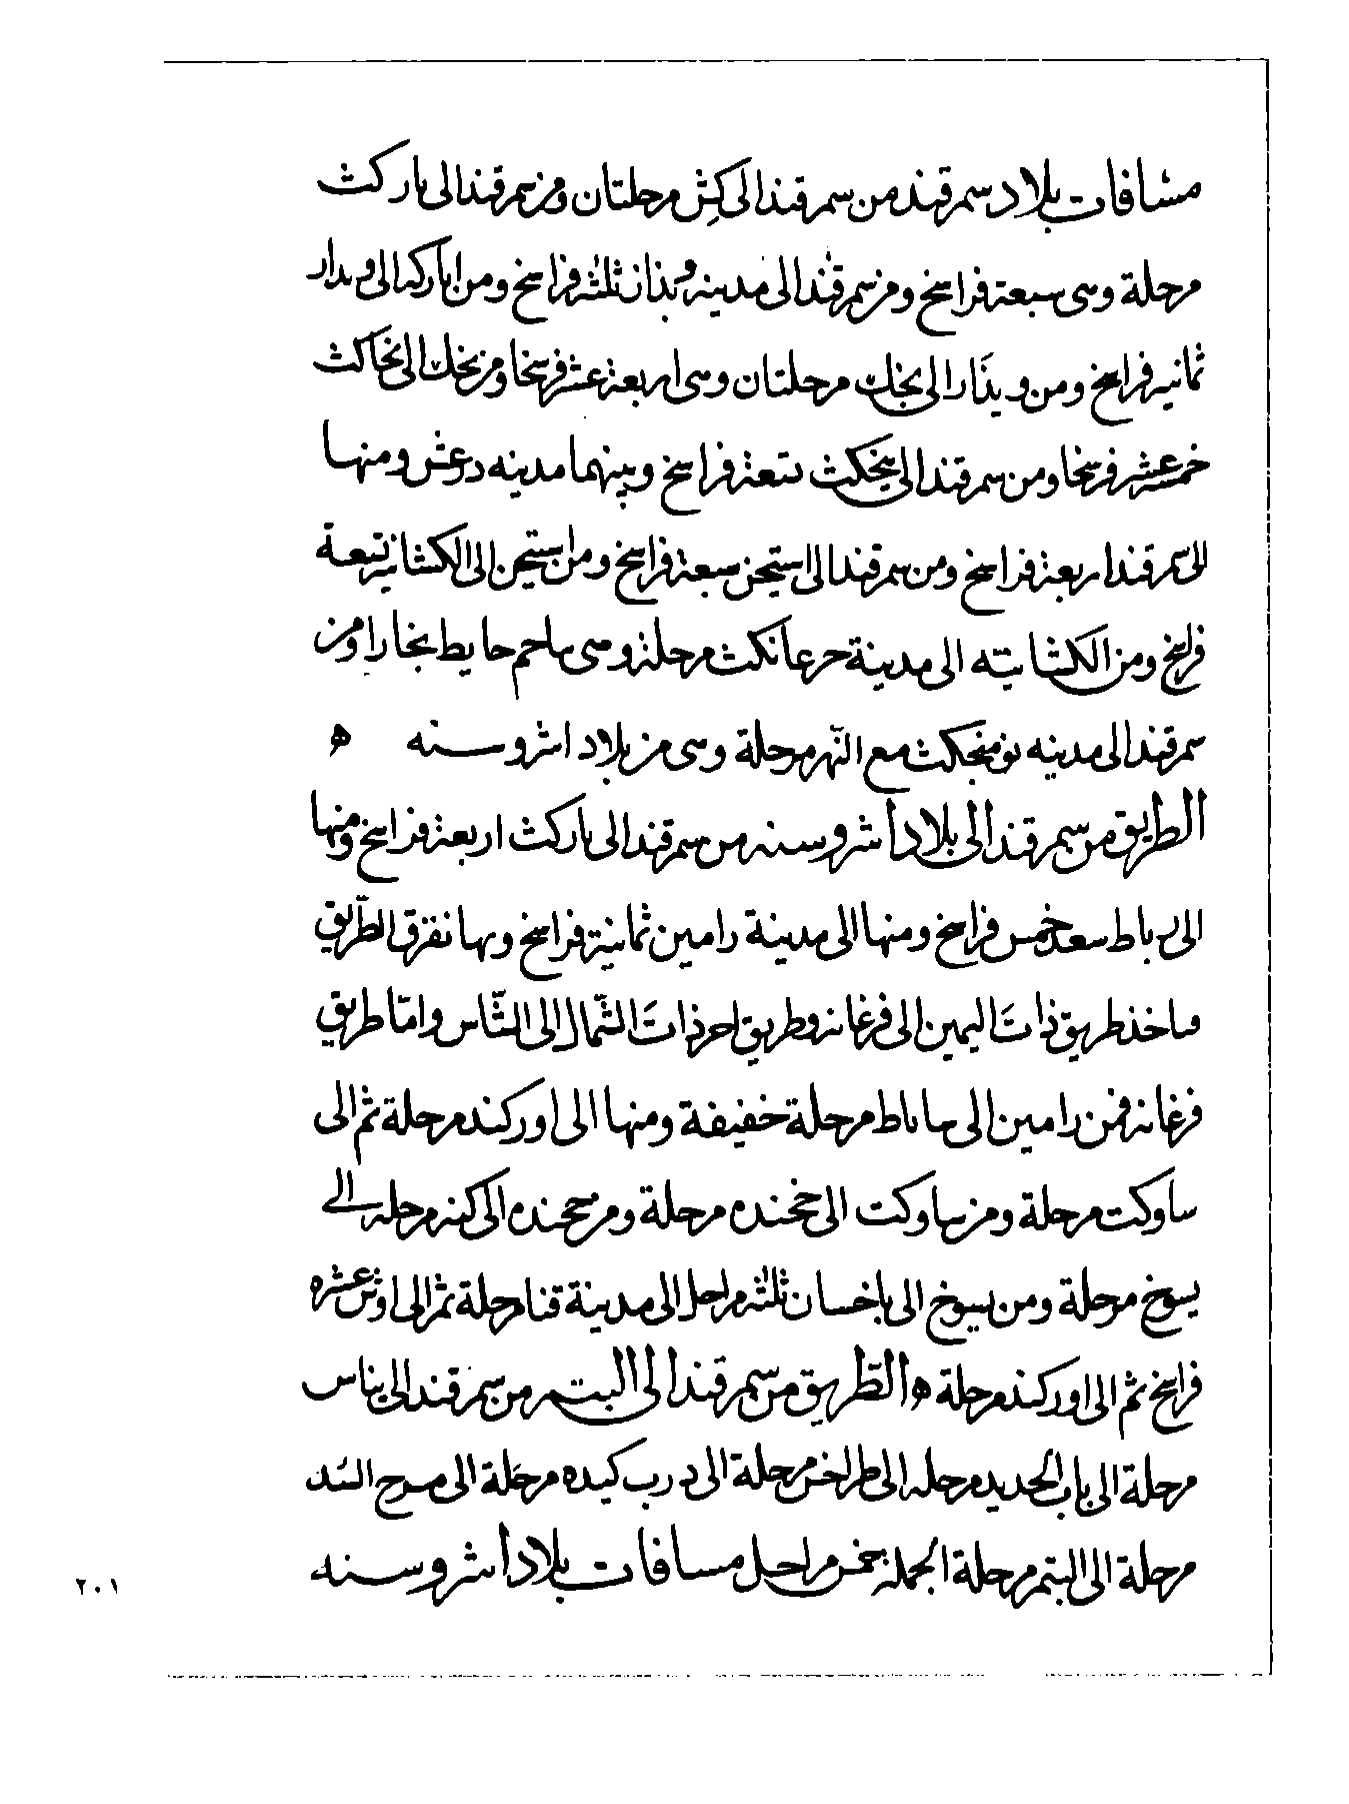 مسافات بلاد سمرقند من سمرقند الى كش مرحلتان ومن سمرقند الى باركث
مرحلة وهى سبعة فراسخ ومن سمرقند الى مدينة ثلثة فراسخ ومن الى
ثمانية فراسخ ومن ويذار الى مرحلتان وهى اربعة عشر فرسخا ومن الى
خمسة عشر فرسخا ومن سمرقند الى تسعة فراسخ وبينهما مدينه ومنها
الى سمرقند اربعة فراسخ ومن سمرقند الى استيجن سبعة فراسخ ومن استيجن الى الكشانيه تسعة
فراسخ ومن الكشانيته الى مدينة مرحلة وهى حايط بخارا ومن
سمرقند الى مدينه بومنجكث مع النهر مرحلة وهى من بلاد اشروسنه ه
الطريق من سمرقند الى بلاد اشروسنه من سمرقند الى باركث اربعة فراسخ ومنها
الى رباط سعد خمس فراسخ ومنها الى مدينة رامين ثمانية فراسخ وبها تفرق الطريق
فاخذ طريق ذات اليمين الى فرغانه وطريق اخر ذات الشمال الى الشاس وامّا طريق
فرغانه فمن رامين الى ساباط مرحلة خفيفة ومنها الى اوركند مرحلة ثم الى
ساوكت مرحلة ومن ساوكت الى خجنده مرحلة ومن خجنده الى كنه مرحله الى
يسوخ مرحلة ومن يسوخ الى باخسان ثلثة مراحل الى مدينة قبا مرحلة ثم الى اوش عشره
فراسخ ثم الى اوركند مرحلة ه الطريق من سمرقند الى البتم من سمرقند الى بناس
مرحلة الى باب الحديد مرحله الى مرحلة الى درب كيده مرحلة الى
مرحلة الى البتم مرحلة الجملة خمس مراحل مسافات بلاد اشروسنه
٢٠١